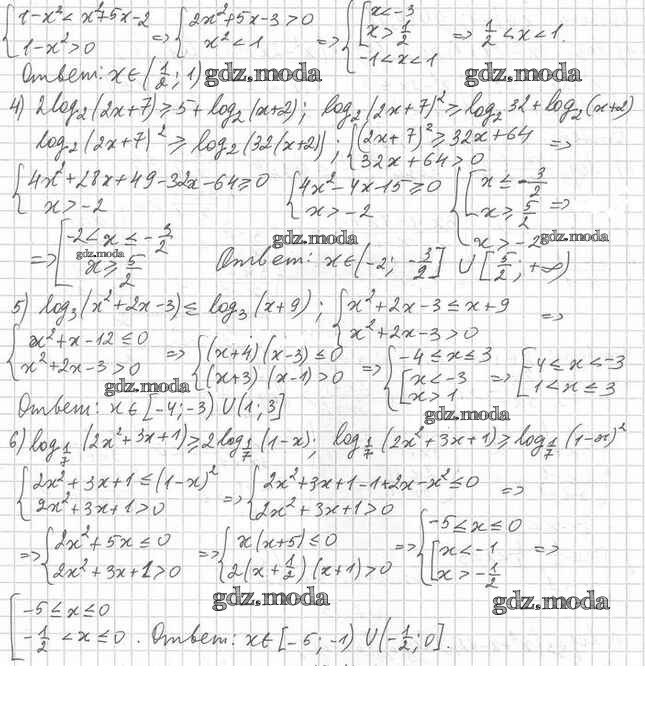 {1-x²< x²+5x-2 {2x²+5x-3>0 {[x<-3
1-x²>0 => x²<1 => x>1/2 => 1/2<x<1.
-1<x<1
Ответ: x∈(1/2; 1) gdz.moda gdz.moda
4) 2log₂(2x+7)≥5+log₂(x+2); log₂(2x+7)²≥log₂32+log₂(x+2)
log₂(2x+7)²≥log₂(32(x+2)); {(2x+7)²≥32x+64 =>
32x+64>0
{4x²+28x+49-32x-64≥0 {4x²-4x-15≥0 {[x≤-3/2
x>-2 x>-2 x≥5/2 =>
gdz.moda x>-2 gdz.moda
=> [-2<x≤-3/2
gdz.moda x≥5/2 Ответ: x∈(-2; -3/2] ∪ [5/2; +∞)
5) log₃(x²+2x-3)≤log₃(x+9); {x²+2x-3≤x+9 =>
x²+2x-3>0
{x²+x-12≤0 => {(x+4)(x-3)≤0 => {-4≤x≤3 => [-4≤x<-3
x²+2x-3>0 (x+3)(x-1)>0 [x<-3 1<x≤3
gdz.moda x>1
Ответ: x∈[-4;-3) ∪ (1;3] gdz.moda
6) log₁/₇(2x²+3x+1)≥2log₁/₇(1-x); log₁/₇(2x²+3x+1)≥log₁/₇(1-x)²
{2x²+3x+1≤(1-x)² => {2x²+3x+1-1+2x-x²≤0 =>
2x²+3x+1>0 2x²+3x+1>0
=> {2x²+5x≤0 => {x(x+5)≤0 => {-5≤x≤0
2x²+3x+1>0 2(x+1/2)(x+1)>0 [x<-1 =>
x>-1/2
gdz.moda gdz.moda
[-5≤x≤0
-1/2<x≤0. Ответ: x∈[-5; -1) ∪ (-1/2; 0].